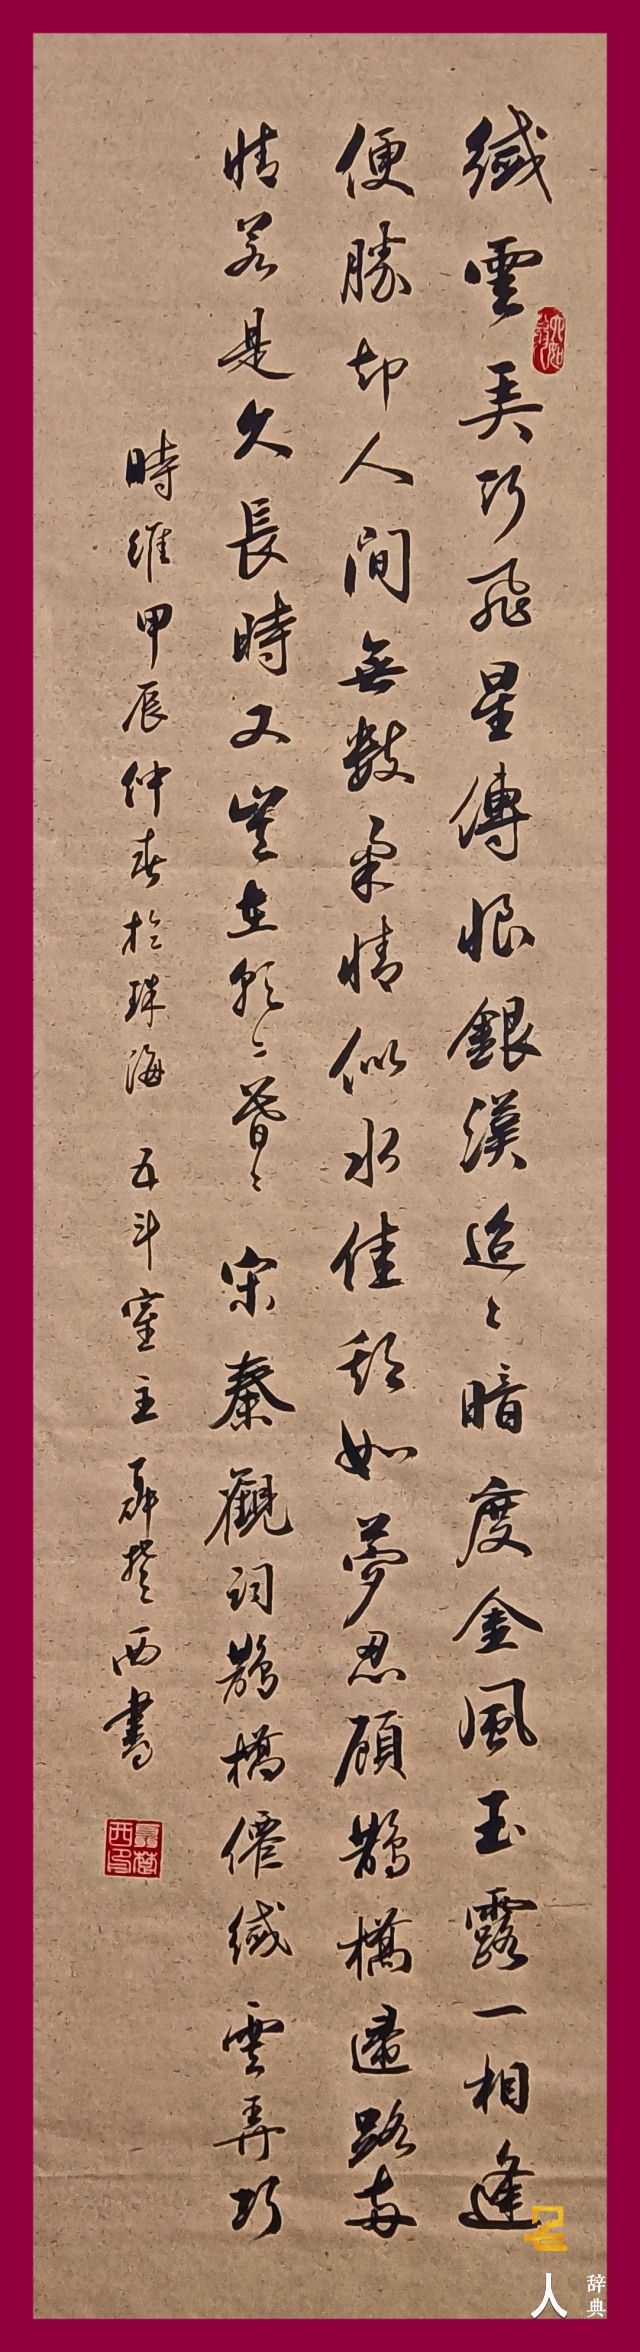 纖雲弄巧飛星傳恨銀漢迢〻暗度金風玉露一相逢
便勝却人間無數柔情似水佳期如夢忍顧鵲橋歸路兩
情若是久長時又豈在朝〻暮〻 宋秦觀詞鵲橋僊纖雲弄巧
時維甲辰仲春於珠海 五斗室主聶楚西書
名人辞典